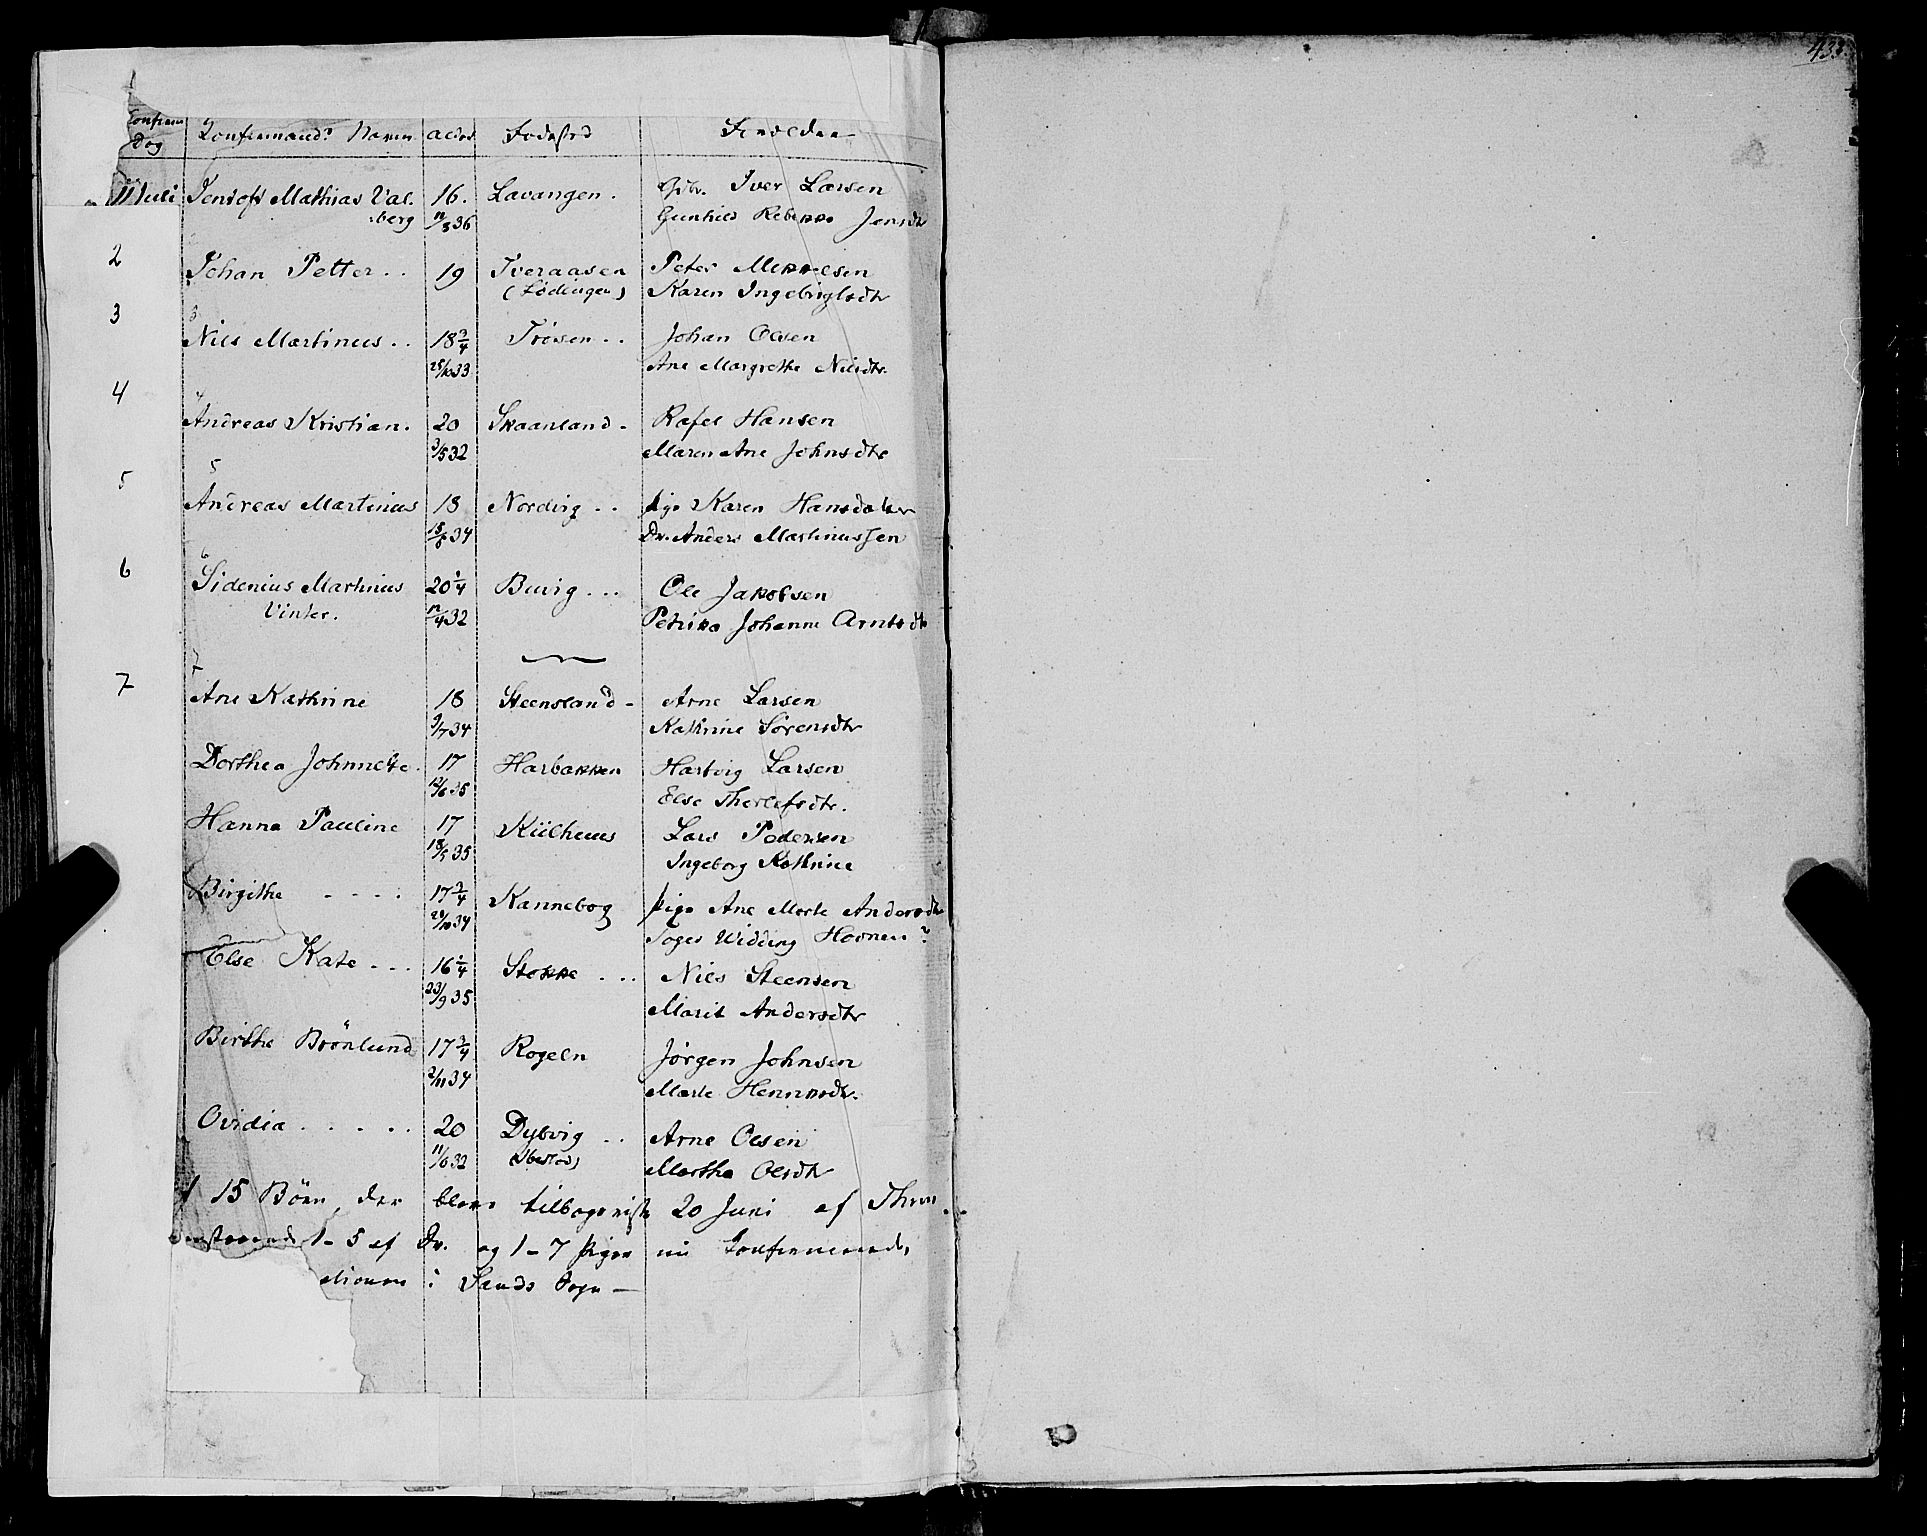 433.
Confirm Konfirmand: Navn alder Fødested Forældre
Dag
11 Juli Jentoft Mathias Val- 16. Lavangen. Gdbr. Iver Larsen
berg 11/3 36 Gunhild Rebekka Jensdtr
2 Johan Petter.. 19 Tveraasen Peter Mikkelsen
(Lødingen) Karen Ingebrigtsdtr
3 Nils Martinus.. 18 3/4 Trøsen.. Johan Olsen
25/10 33 Ane Margrethe Nilsdtr.
4 Andreas Kristian. 20 Skaanland- Rafel Hansen
3/5 32 Maren Ane Johnsdtr
5 Andreas Martinus 18 Nordvig.. Pige Karen Hansdatter
18/6 34 Dr. Anders Martinussen
6 Sidenius Martinius 20 1/4 Buvig... Ole Jakobsen
Vinter. 17/4 32 Petrika Johanne Arntsdtr
7 Ane Kathrine 18 Steensland- Arne Larsen
9/7 34 Kathrine Sørensdtr
Dorthea Johnnette. 17 Harbakken Hartvig Larsen
12/6 35 Else Therlefsdtr.
Hanna Pauline 17 Kiilhuus Lars Pedersen
18/5 35 Ingeborg Kathrine
Birgithe - - - - 17 3/4 Kannebog Pige Ane Marte Andersdtr
20/10 34 Widding
Else Kate - - - 16 1/4 Stokke ... Nils Steensen
23/9 35 Marit Andersdtr
Birthe Brønlund 17 3/4 Rogeln Jørgen Johnsen
2/11 34 Marte
Ovidia..... 20 Dybvig.. Arne Olsen
11/6 32 (Ibestad) Martha Olsdtr
15 Börn, der bleve tilbageviste 20 Juni af
1-5 af Dr. og 1-7 Piger nu Confirmerede,
i Sands Sogn-